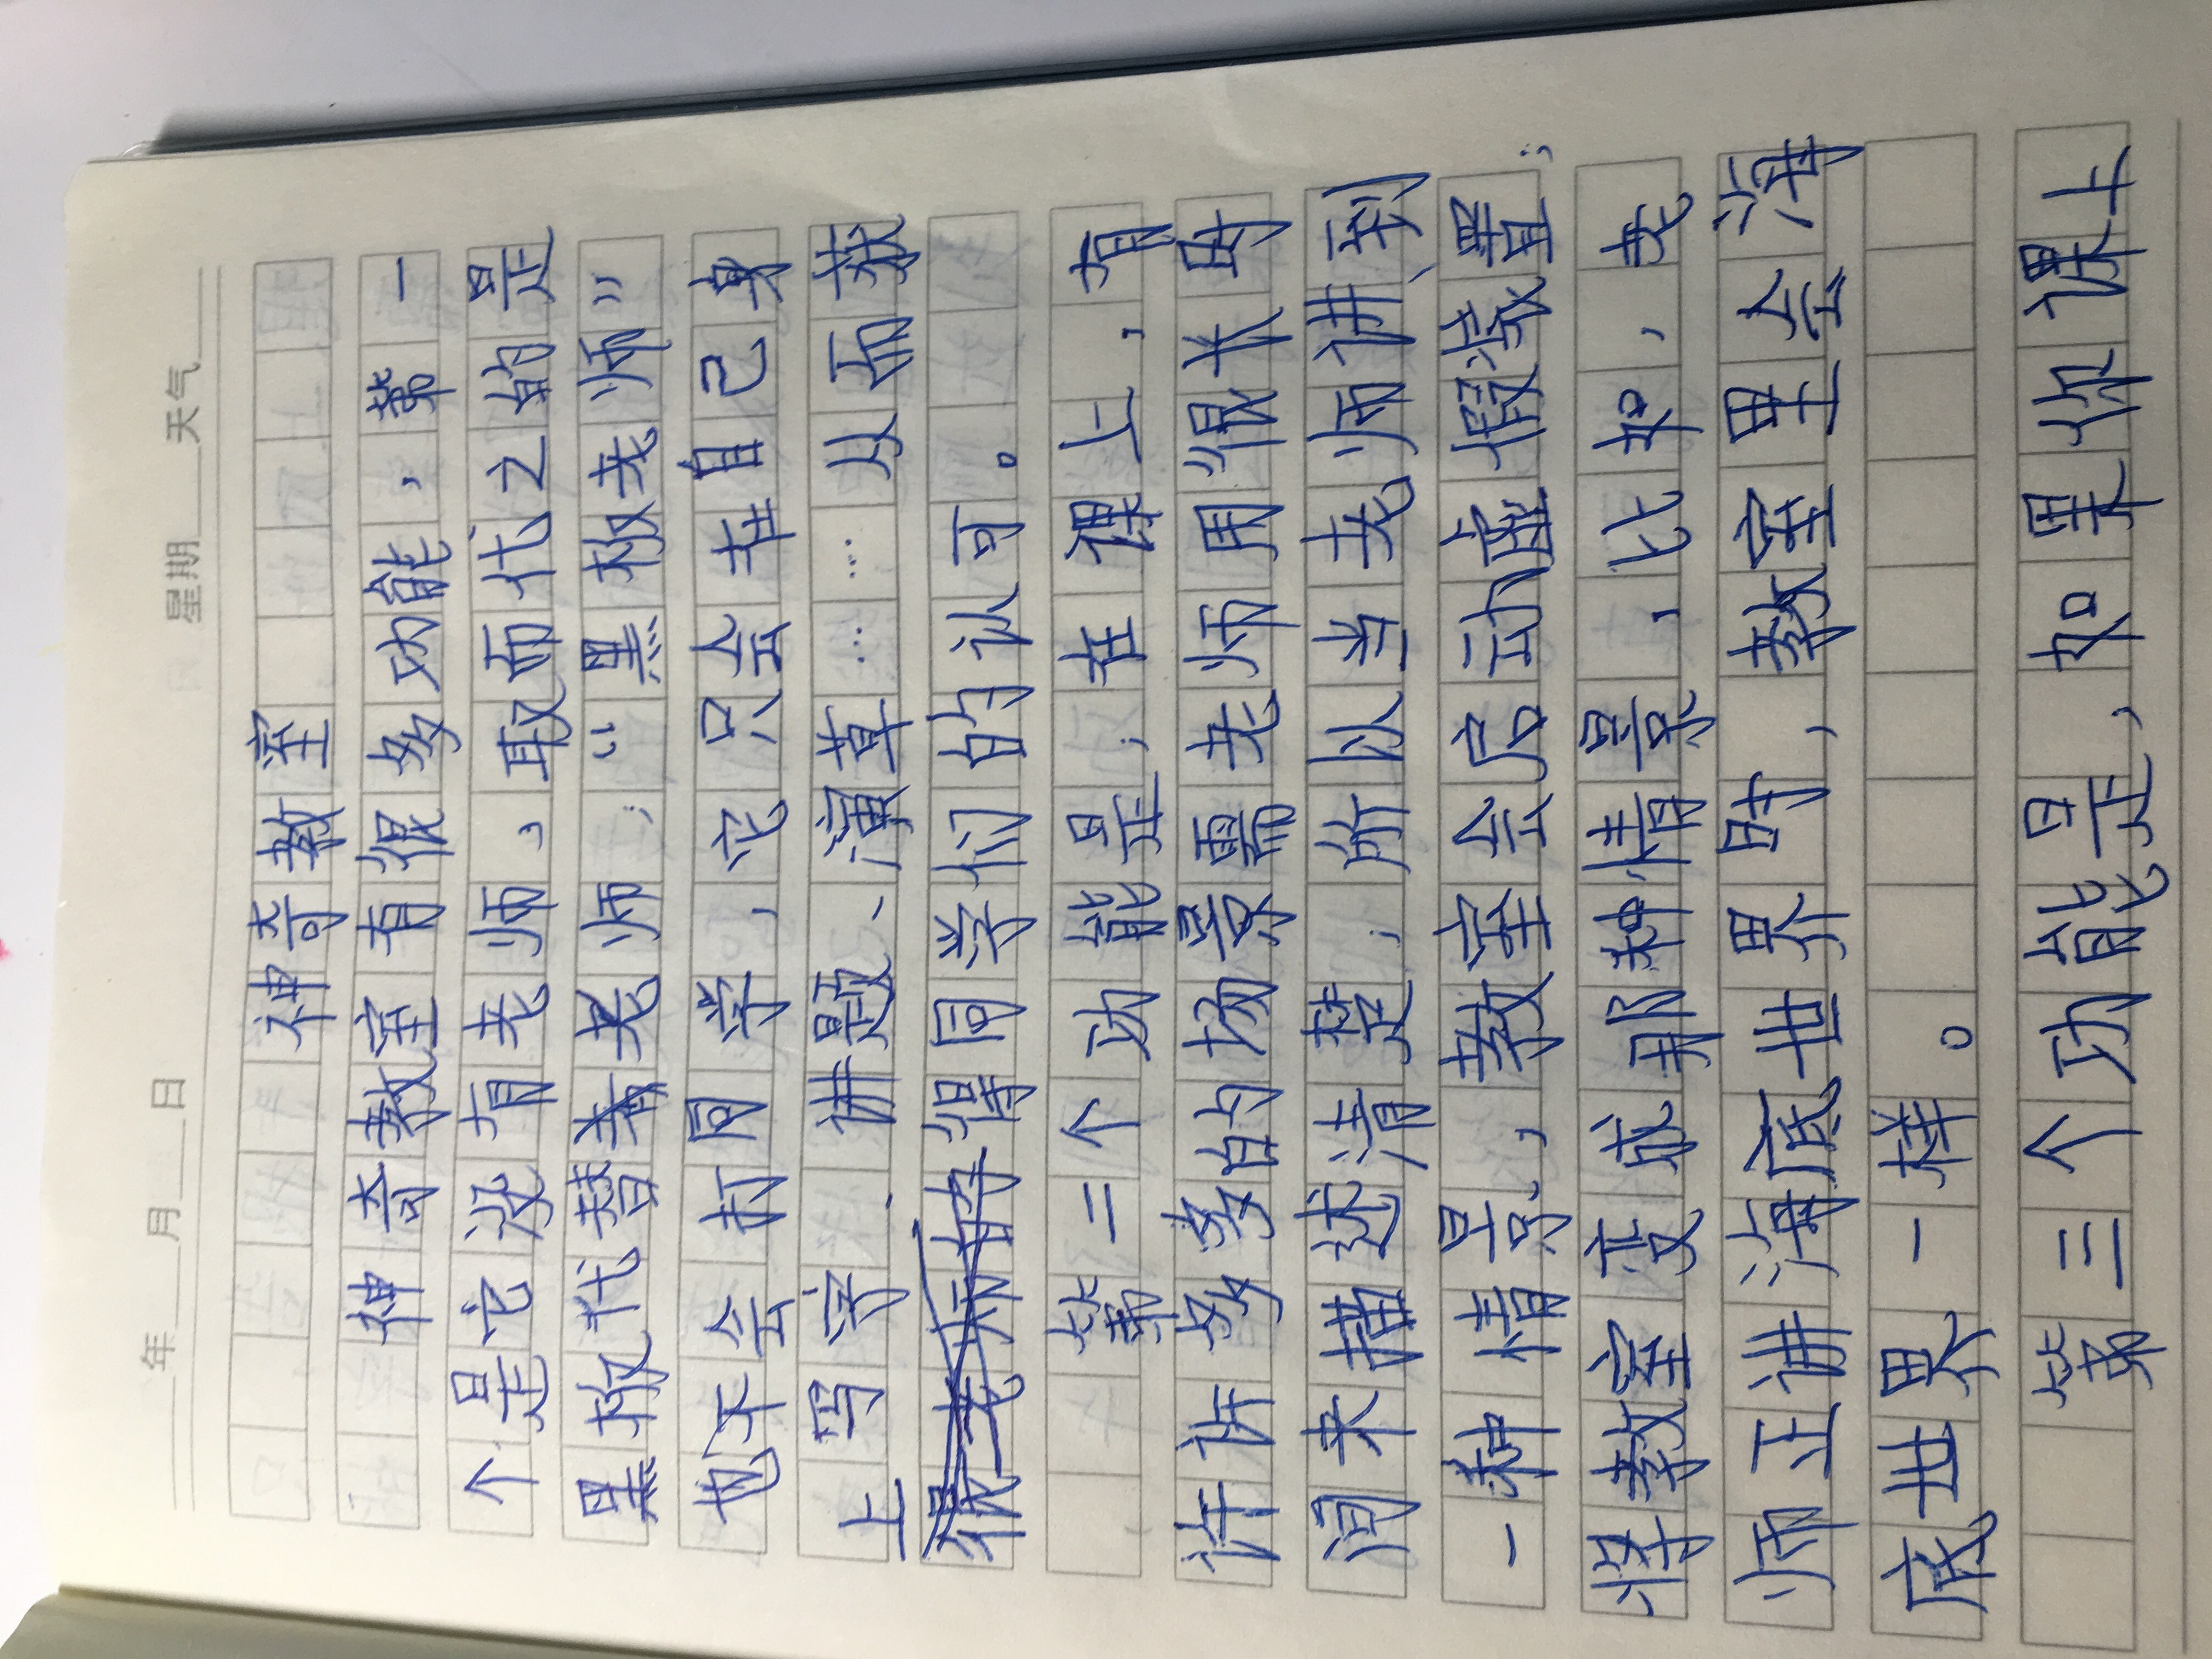 年 月 日 星期 天气
神奇教室
神奇教室有很多功能,第一
个是它没有老师,取而代之的是
黑板代替着老师;“黑板老师”
也不会打同学,它只会在自己身
上写字、讲题、演草……从而获
得同学们的认可。
第二个功能是,在课上,有
许许多多的场景需老师用很长时
间来描述清楚,所以当老师讲到
一种情景,教室会启动虚假装置;
将教室变成那种情景,比如,老
师正讲海底世界时,教室里会海
底世界一样。
第三个功能是,如果你课上